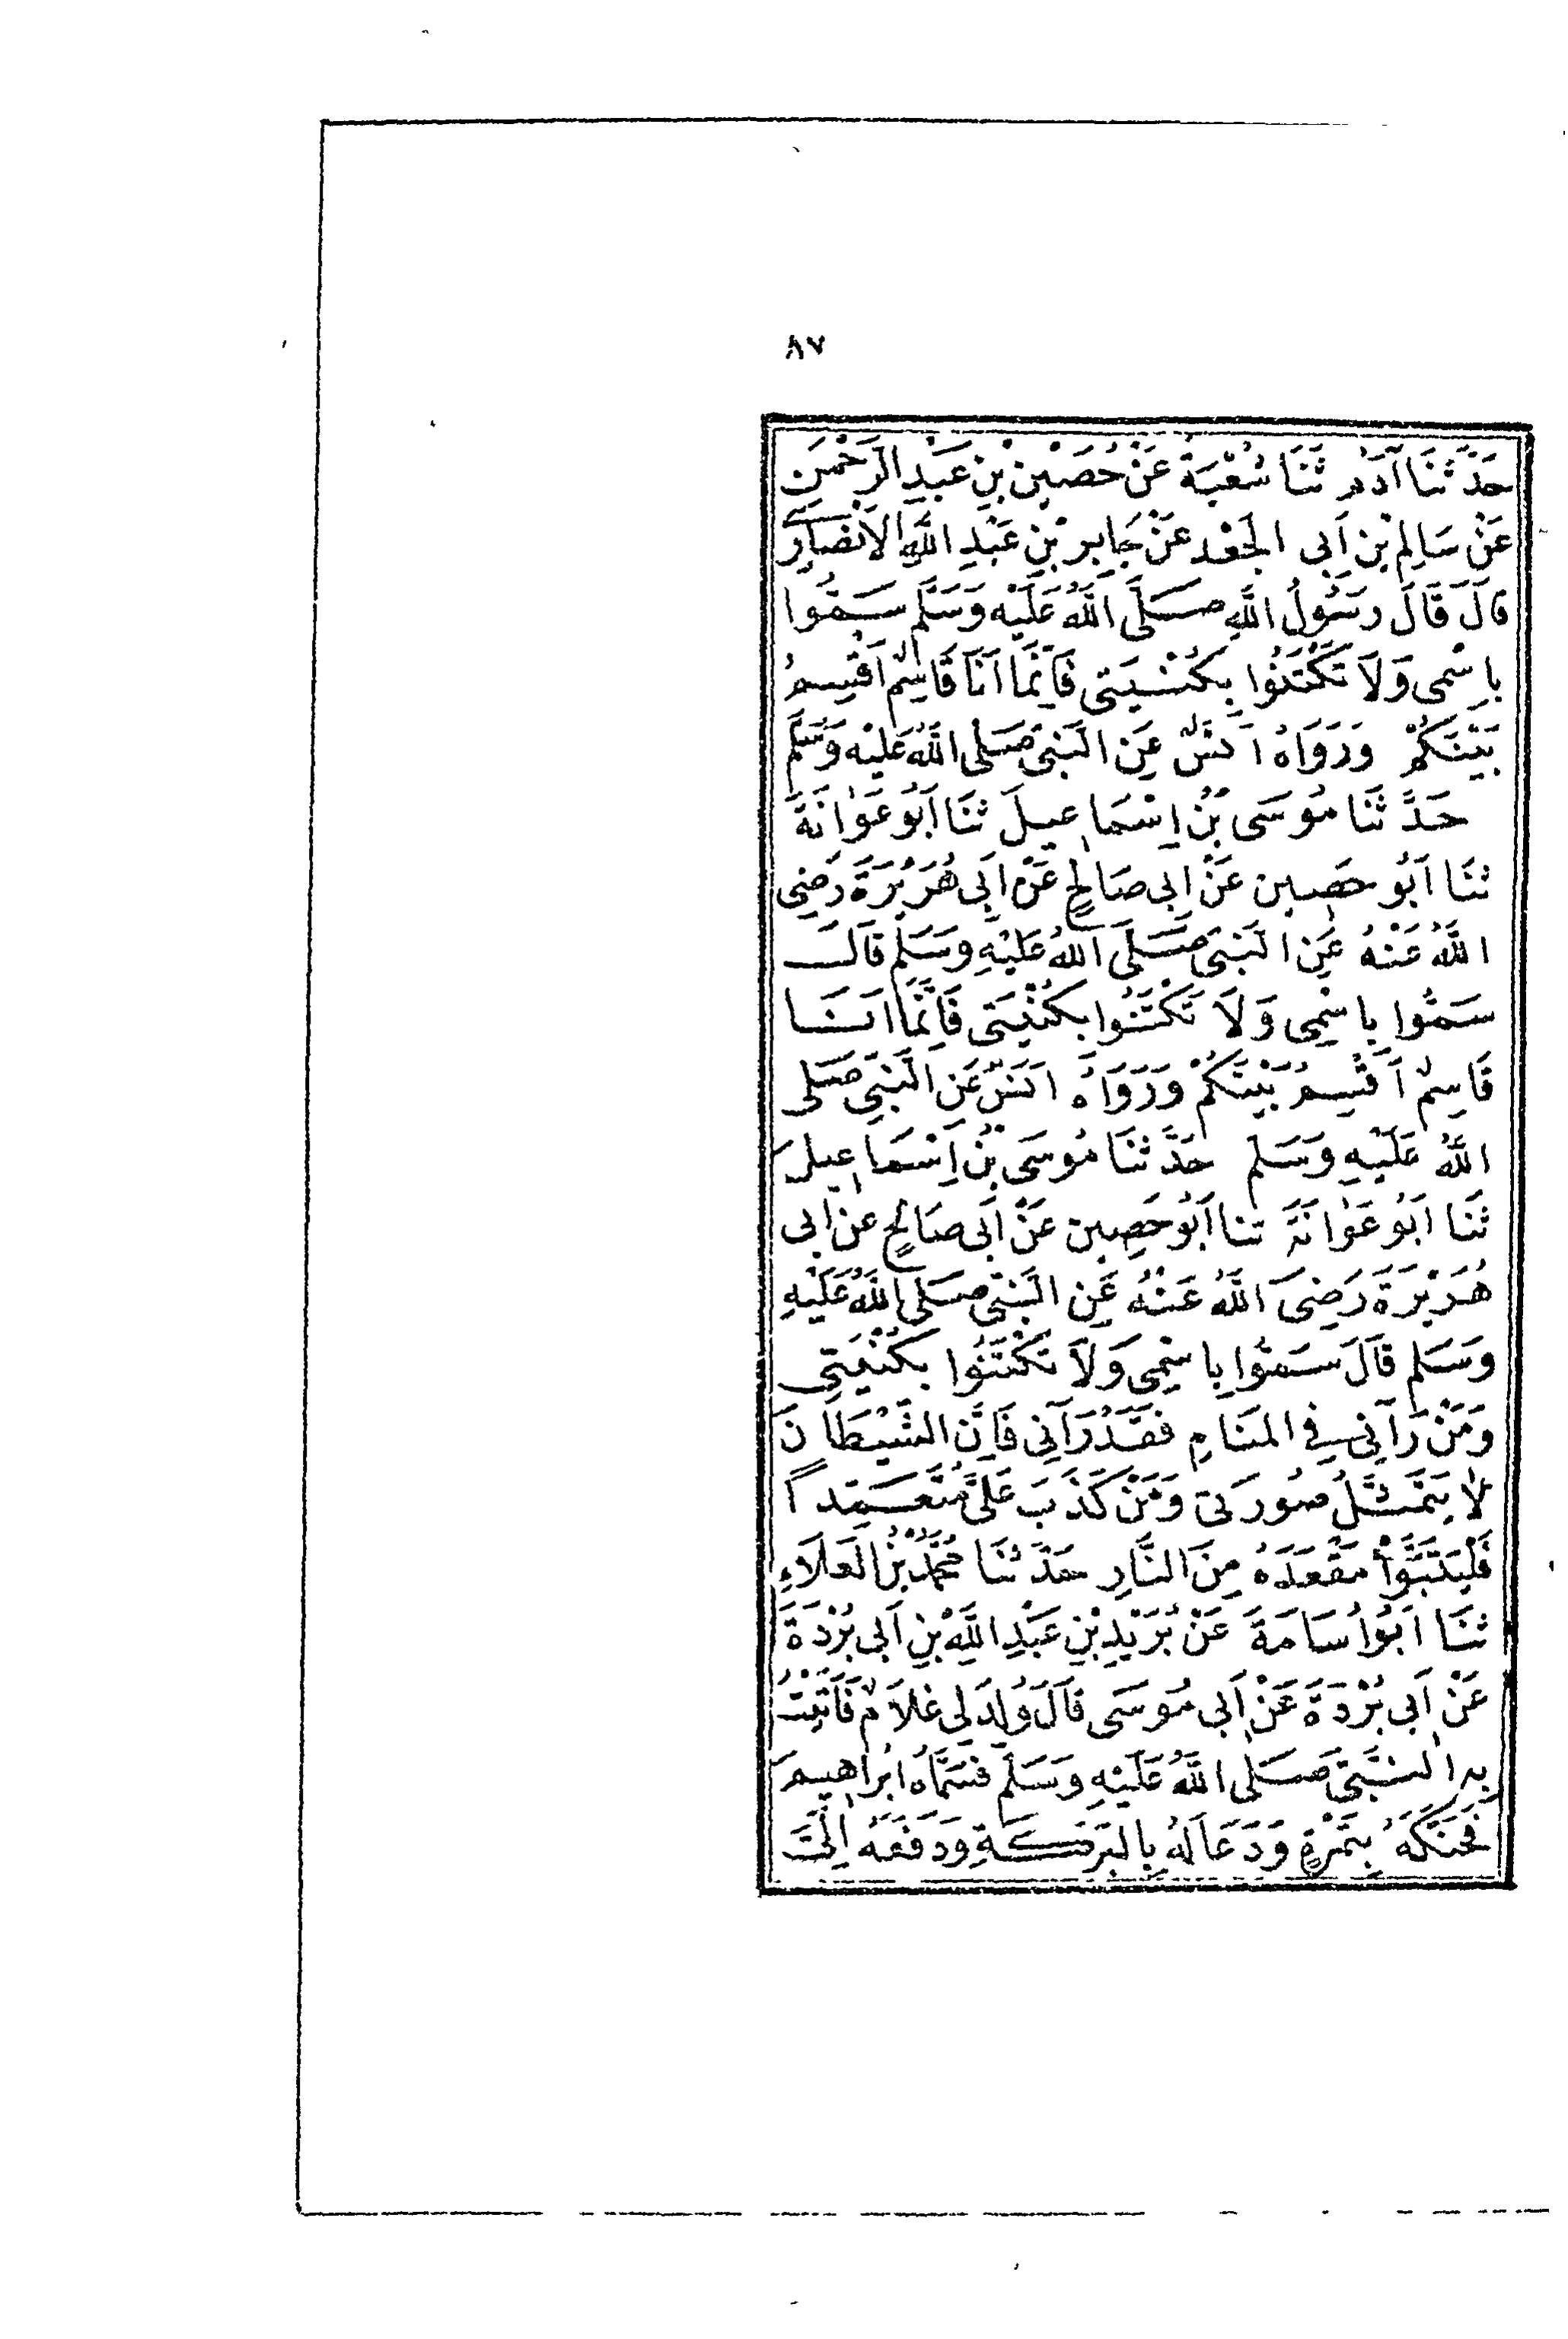 ٨٧
حَدَّثَنَا آدَمُ ثَنَا شُعْبَةُ عَنْ حُصَيْنِ بْنِ عَبْدِ الرَّحْمَنِ
عَنْ سَالِمِ بْنِ أَبِى الْجَعْدِ عَنْ جَابِرِ بْنِ عَبْدِ اللَّهِ الْاَنْصَارِى
قَالَ قَالَ رَسُولُ اللَّهِ صَلَّى اللَّهُ عَلَيْهِ وَسَلَّمَ سَمُّوا
بِاسْمِى وَلَا تَكْتَنُوا بِكُنْيَتِى فَاِنَّمَا اَنَا قَاسِمٌ اَقْسِمُ
بَيْنَكُمْ وَرَوَاهُ اَنَسٌ عَنِ النَّبِىِّ صَلَّى اللَّهُ عَلَيْهِ وَسَلَّمَ
حَدَّثَنَا مُوسَى بْنُ اِسْمَاعِيلَ ثَنَا اَبُو عَوَانَةَ
ثَنَا اَبُو حَصِين عَنْ اَبِى صَالِحٍ عَنْ اَبِى هُرَيْرَةَ رَضِىَ
اللَّهُ عَنْهُ عَنِ النَّبِىِّ صَلَّى اللهُ عَلَيْهِ وَسَلَّمَ قَالَ
سَمُّوا بِاسْمِى وَلَا تَكْتَنُوا بِكُنْيَتِى فَاِنَّمَا اَنَا
قَاسِمٌ اَقْسِمُ بَيْنَكُمْ وَرَوَاهُ اَنَسٌ عَنِ النَّبِىِّ صَلَّى
اللَّهُ عَلَيْهِ وَسَلَّمَ حَدَّثَنَا مُوسَى بْنُ اِسْمَاعِيلَ
ثَنَا اَبُو عَوَانَةَ ثنا اَبُو حَصِين عَنْ اَبِى صَالِحٍ عن ابى
هُرَيْرَةَ رَضِىَ اللَّهُ عَنْهُ عَنِ النَّبِىِّ صَلَّى اللَّهُ عَلَيْهِ
وَسَلَّمَ قَالَ سَمُّوا بِاسْمِى وَلَا تَكْتَنُوا بِكُنْيَتِى
وَمَنْ رَآنِى فِى الْمَنَامِ فَقَدْ رَآنِى فَاِنَّ الشَّيْطَانَ
لَا يَتَمَثَّلُ صُورَتِى وَمَنْ كَذَبَ عَلَىَّ مُتَعَمِّدًا
فَلْيَتَبَوَّأْ مَقْعَدَهُ مِنَ النَّارِ حَدَّثَنَا مُحَمَّدُ بْنُ الْعَلَاءِ
ثَنَا اَبُو اُسَامَةَ عَنْ بُرَيْدِ بْنِ عَبْدِ اللَّهِ بْنِ اَبِى بُرْدَةَ
عَنْ اَبِى بُرْدَةَ عَنْ اَبِى مُوسَى قَالَ وُلِدَ لِى غُلَامٌ فَأَتَيْتُ
بِهِ النَّبِىَّ صَلَّى اللَّهُ عَلَيْهِ وَسَلَّمَ فَسَمَّاهُ اِبْرَاهِيمَ
فَحَنَّكَهُ بِتَمْرَةٍ وَدَعَا لَهُ بِالْبَرَكَةِ وَدَفَعَهُ اِلَىَّ